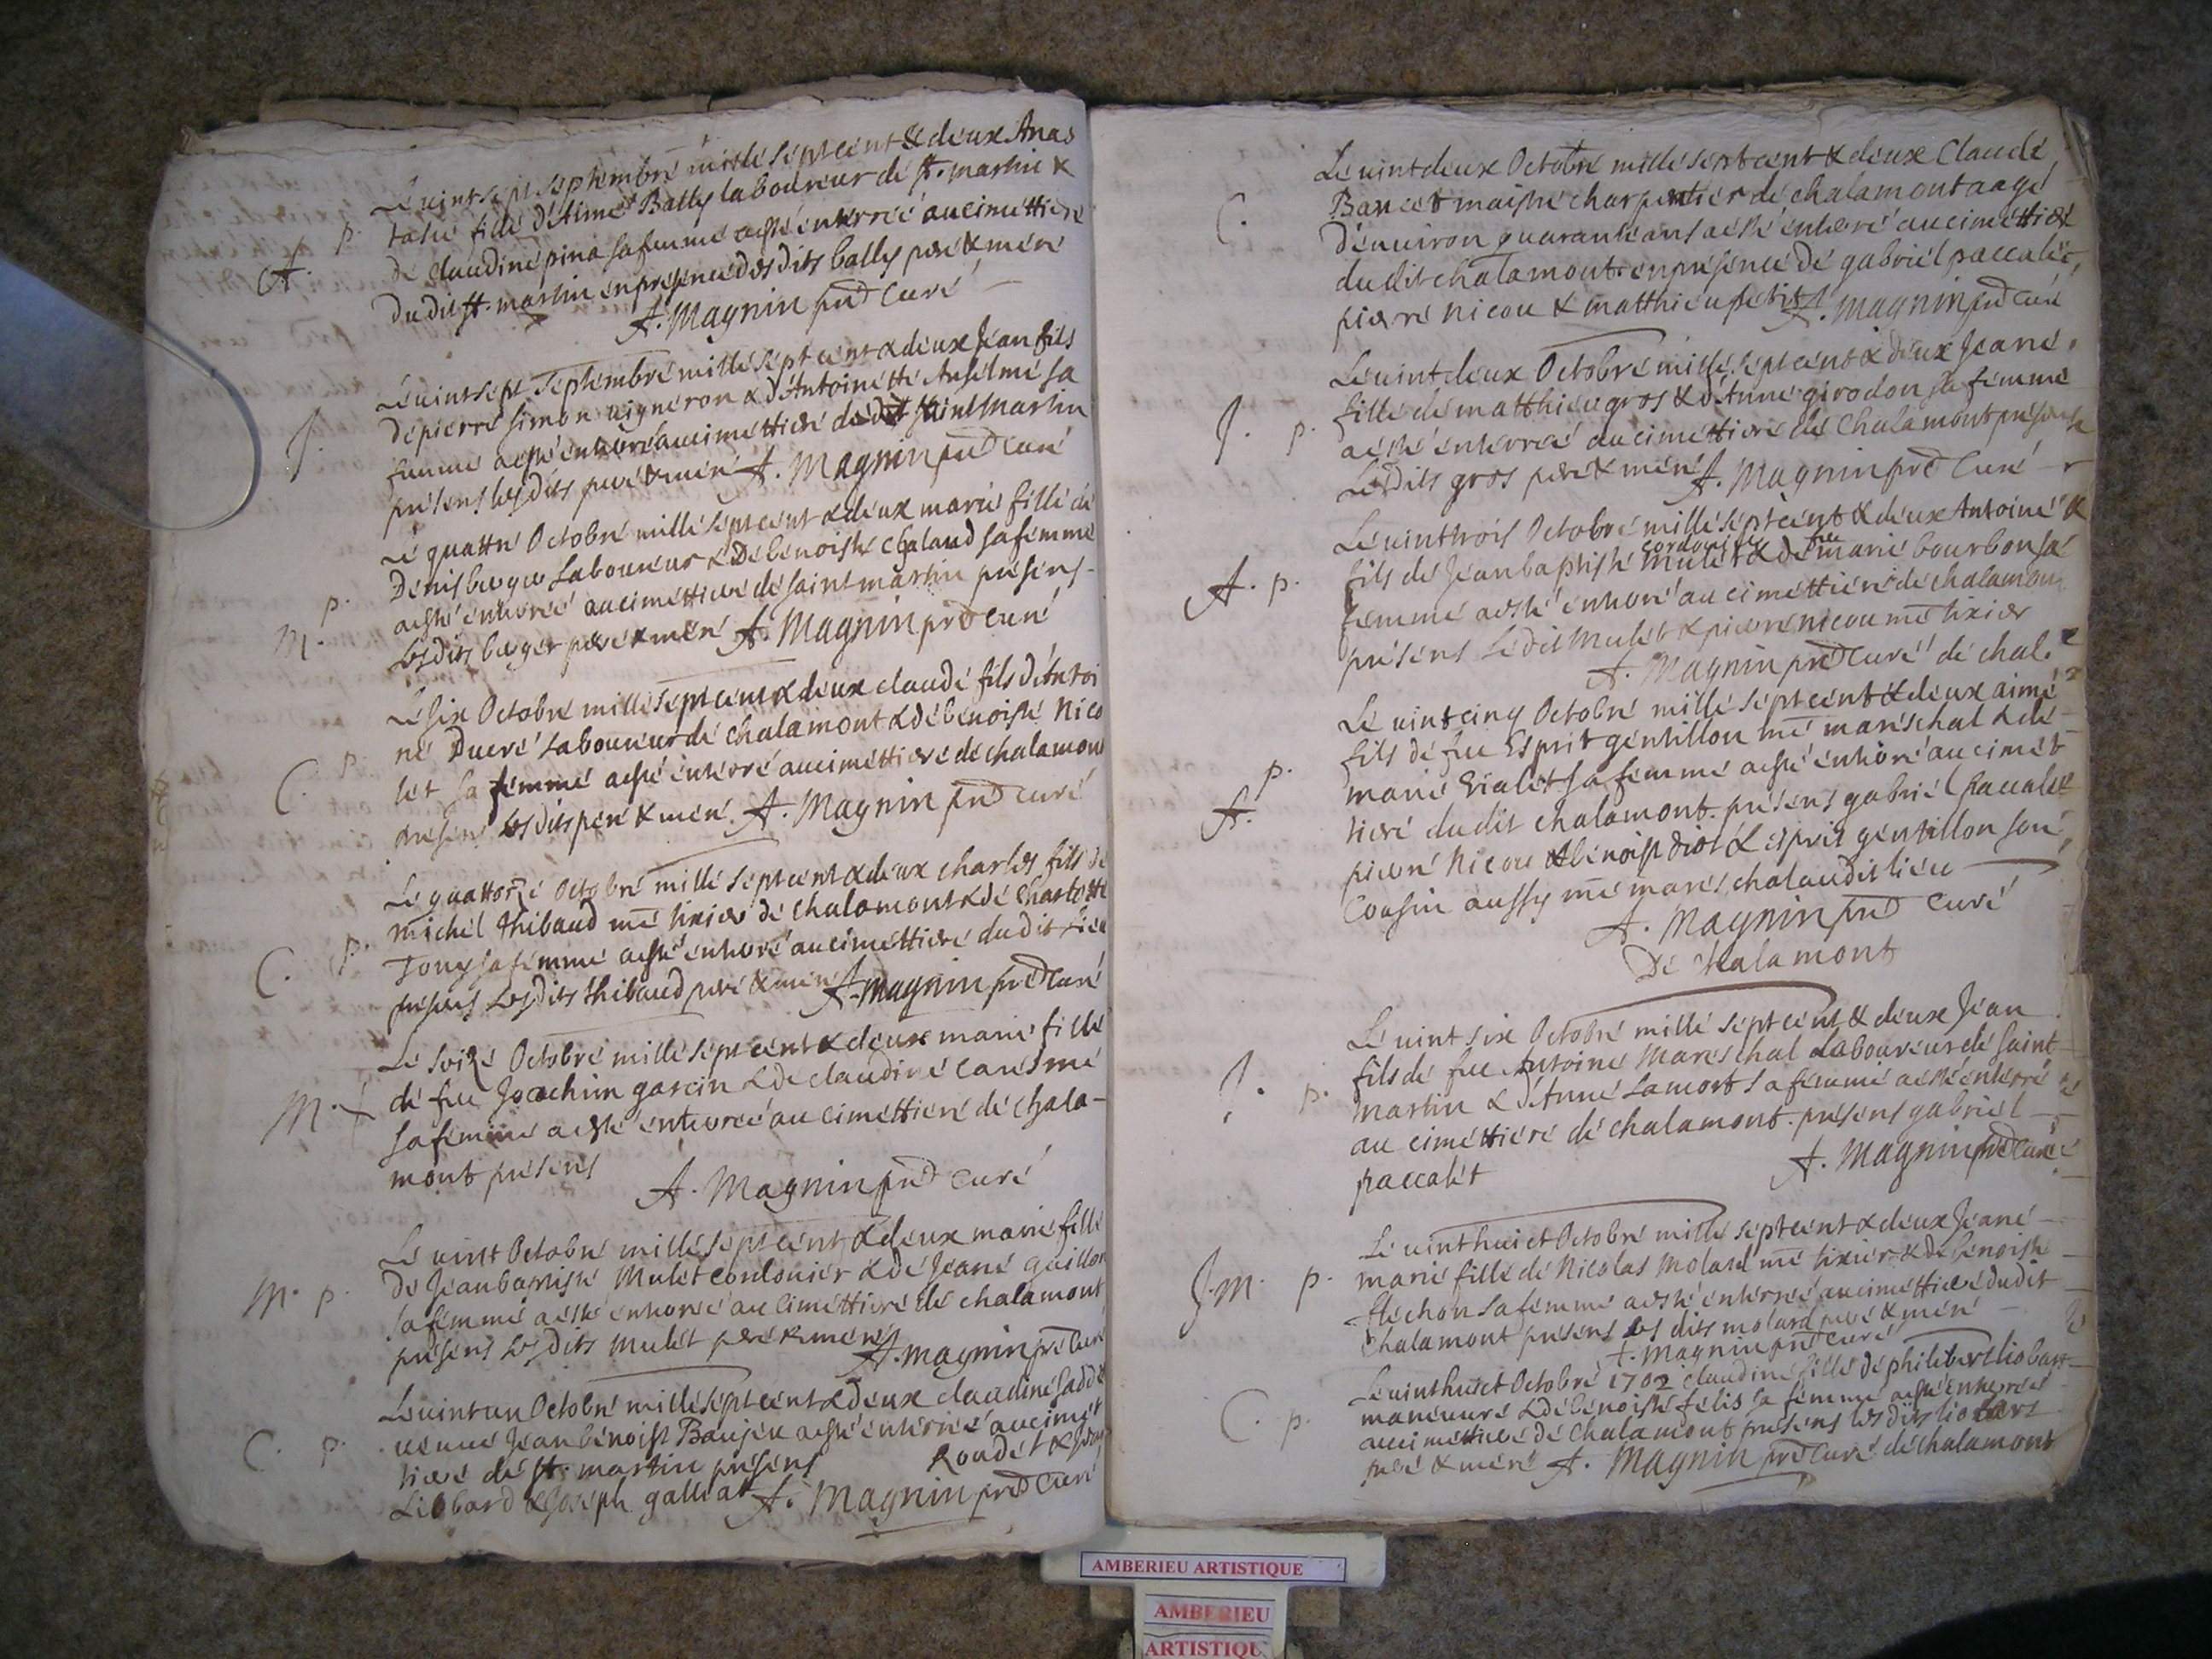 Le vint sept septembre mille sept cent & deux Anas
A. p. tasie fille d'Aimé Bally laboureur de st. martin &
de Claudine pina sa femme aesté enterreé au cimettiere
dudit st. martin en presence des dits bally pere & mere
A. Magnin prd Curé
Le vint sept septembre mille sept cent & deux Jean fils
J. de pierre simon vigneron & d'Antoinette Anselme sa
femme aesté enterré au cimettiere dudit saint martin
présens les dits pere & mere A. Magnin prd curé
Le quattre Octobre mille sept cent & deux marie fille de
M. p. Denis berger Laboureur & De benoiste chaland sa femme
aesté enterreé au cimettiere de saint martin présens
Les dits berger pere & mere A. Magnin prd curé
Le six Octobre mille sept cent & deux claude fils d'Antoi
C. p. ne Ducré Laboureur de chalamont & de benoiste Nico
let sa femme aesté enterré au cimettiere de chalamont
présens les dits pere & mere. A. Magnin prd curé
Le quattorze Octobre mille sept cent & deux charles fils de
C. p. michel thibaud me tixier de chalamont & de Charlotte
Tony sa femme aesté enterré au cimettiere dudit Lieu
présens Les dits thibaud pere & mere A. Magnin prd Curé
Le seize Octobre mille sept cent & deux marie fille
M. de feu Joachim garcin & de claudine caresme
sa femme aesté enterreé au cimettiere de chala-
mont présens
A. Magnin prd curé
Le vint Octobre mille sept cent & deux marie fille
M. p. De Jean baptiste Mulet cordonier & de Jeane guillon
sa femme aesté enterreé au Cimettiere de chalamont
présens Les dits Mulet pere & mere A. Magnin prd Curé
Le vint un Octobre mille sept cent & deux claudine
C. p. veuve Jean benoist Baujeu aesté enterreé au cimet
tiere de st. martin présens Roudet &
Libbard & Joseph galliat A. Magnin prd Curé
Le vint deux Octobre mille sept cent & deux Claude
C. Bancet maistre charpentier de chalamont aagé
d'environ quarante ans aesté enterré au cimettiere
dudit chalamont en présence de gabriel paccalet,
pierre nicou & matthieu petit A. Magnin prd curé
Le vint deux Octobre mille sept cent & deux Jeane
J. p. fille de matthieu gros & d'Anne girodon sa femme
aesté enterreé au cimettiere de Chalamont présens
Les dits gros pere & mere A. Magnin prd Curé
Le vint trois Octobre mille sept cent & deux Antoine
cordonier feu
A. p. fils de Jean baptiste Mulet & de marie bourbon sa
femme aesté enterré au cimettiere de chalamont
présens Le dit Mulet & pierre nicou me tixier
A. Magnin prd Curé de chal.
Le vint cinq Octobre mille sept cent & deux aimé
fils de feu Esprit gentillon me mareschal & de
A. p. marie vialet sa femme aesté enterré au cimet
tiere dudit chalamont. présens gabriel paccalet
pierre Nicou & benoist diot & esprit gentillon son
Cousin aussy me mareschal audit lieu
A. Magnin prd Curé
De chalamont
Le vint six Octobre mille sept cent & deux Jean
J. p. fils de feu Antoine Mareschal Laboureur de saint
martin & d'Anne Lamort sa femme aesté enterré
au cimettiere de chalamont. présens gabriel
paccalet A. Magnin prd Curé
Le vint huict Octobre mille sept cent & deux Jeane
J.M. p. marie fille de Nicolas Molard me tixier & de benoiste
flechon sa femme aesté enterreé au cimettiere dudit
chalamont présens Les dits molard pere & mere
A. Magnin prd curé
Le vint huict Octobre 1702 claudine fille de philibert liobart
C. p. maneuvre & de benoiste felis sa femme aesté enterreé
au cimettiere de chalamont présens les dits liobart
pere & mere A. Magnin prd Curé de chalamont
AMBERIEU ARTISTIQUE
AMBERIEU
ARTISTIQU